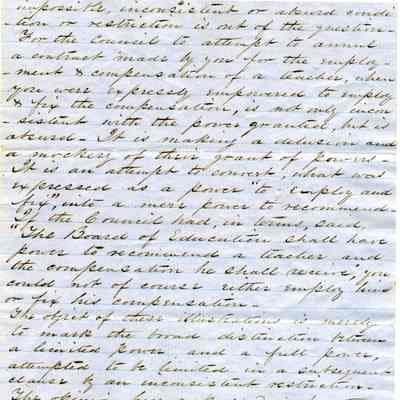 impossible, inconsistent or absurd condi-
tion or restriction is out of the question -
For the Council to attempt to annul
a contract made by you for the employ-
-ment & compensation of a teacher, when
you were expressly empowered to employ
& fix the compensation, is not only incon-
-sistent with the power granted, but is
absurd. It is making a delusion and
a mockery of their grant of powers -
It is an attempt to convert, what was
expressed as a power "to employ and
fix", into a mere power to recommend -
If the Council had, in terms, said,
"The Board of Education shall have
power to recommend a teacher and
the compensation he shall receive, you
could not of course either employ him
or fix his compensation -
The object of these illustrations is merely
to mark the broad distinction between
a limited power and a full power,
attempted to be limited in a subsequent
clause by an inconsistent restriction -
The